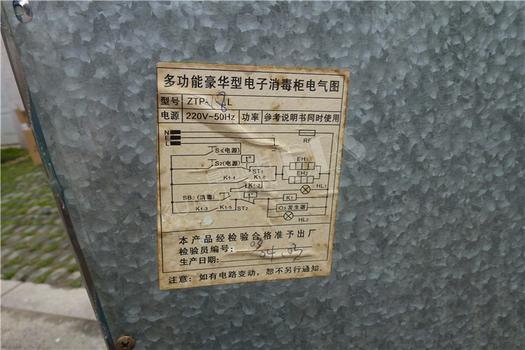 多功能豪华型电子消毒柜电气图
型号 ZTP- 8L
电源 220V~50Hz 功率 参考说明书同时使用
N
L
S1(电源)
RF
S2(电源)
ST1
EH1
K1-1
K1-2
EH2
K1-2
HL1
SB1(消毒)
K1
K1-3
K1-5
ST2
O3发生器
HL2
本产品经检验合格准予出厂
检验员编号: 08
生产日期:
注意: 如有电路变动, 恕不另行通知